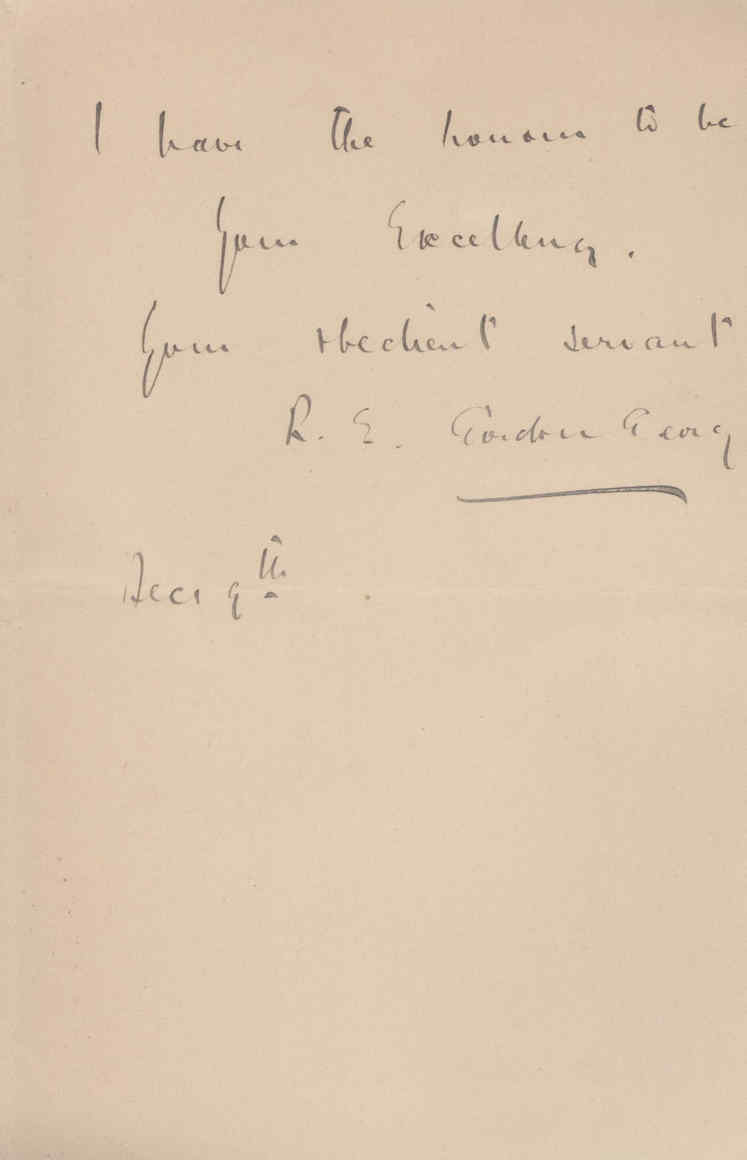 I have the honour to be
Your Excellency.
Your obedient servant
R. E. Gordon George
Decr 9th